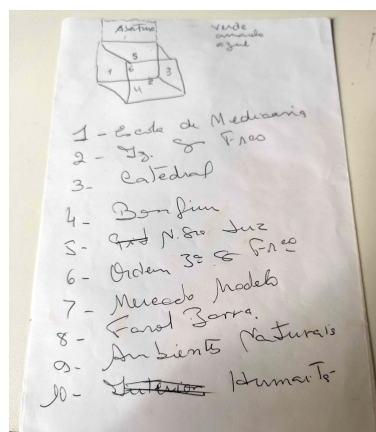 Abertura
verde
amarelo
azul
5
1 6 3
2
4
1 - Escola de Medicina
2 - Ig. S Frco
3 - Catedral
4 - Bonfim
5 - N. Sra Luz
6 - Ordem 3ª S Frco
7 - Mercado Modelo
8 - Farol Barra.
9 - Ambients Naturais
10 - Humaitá